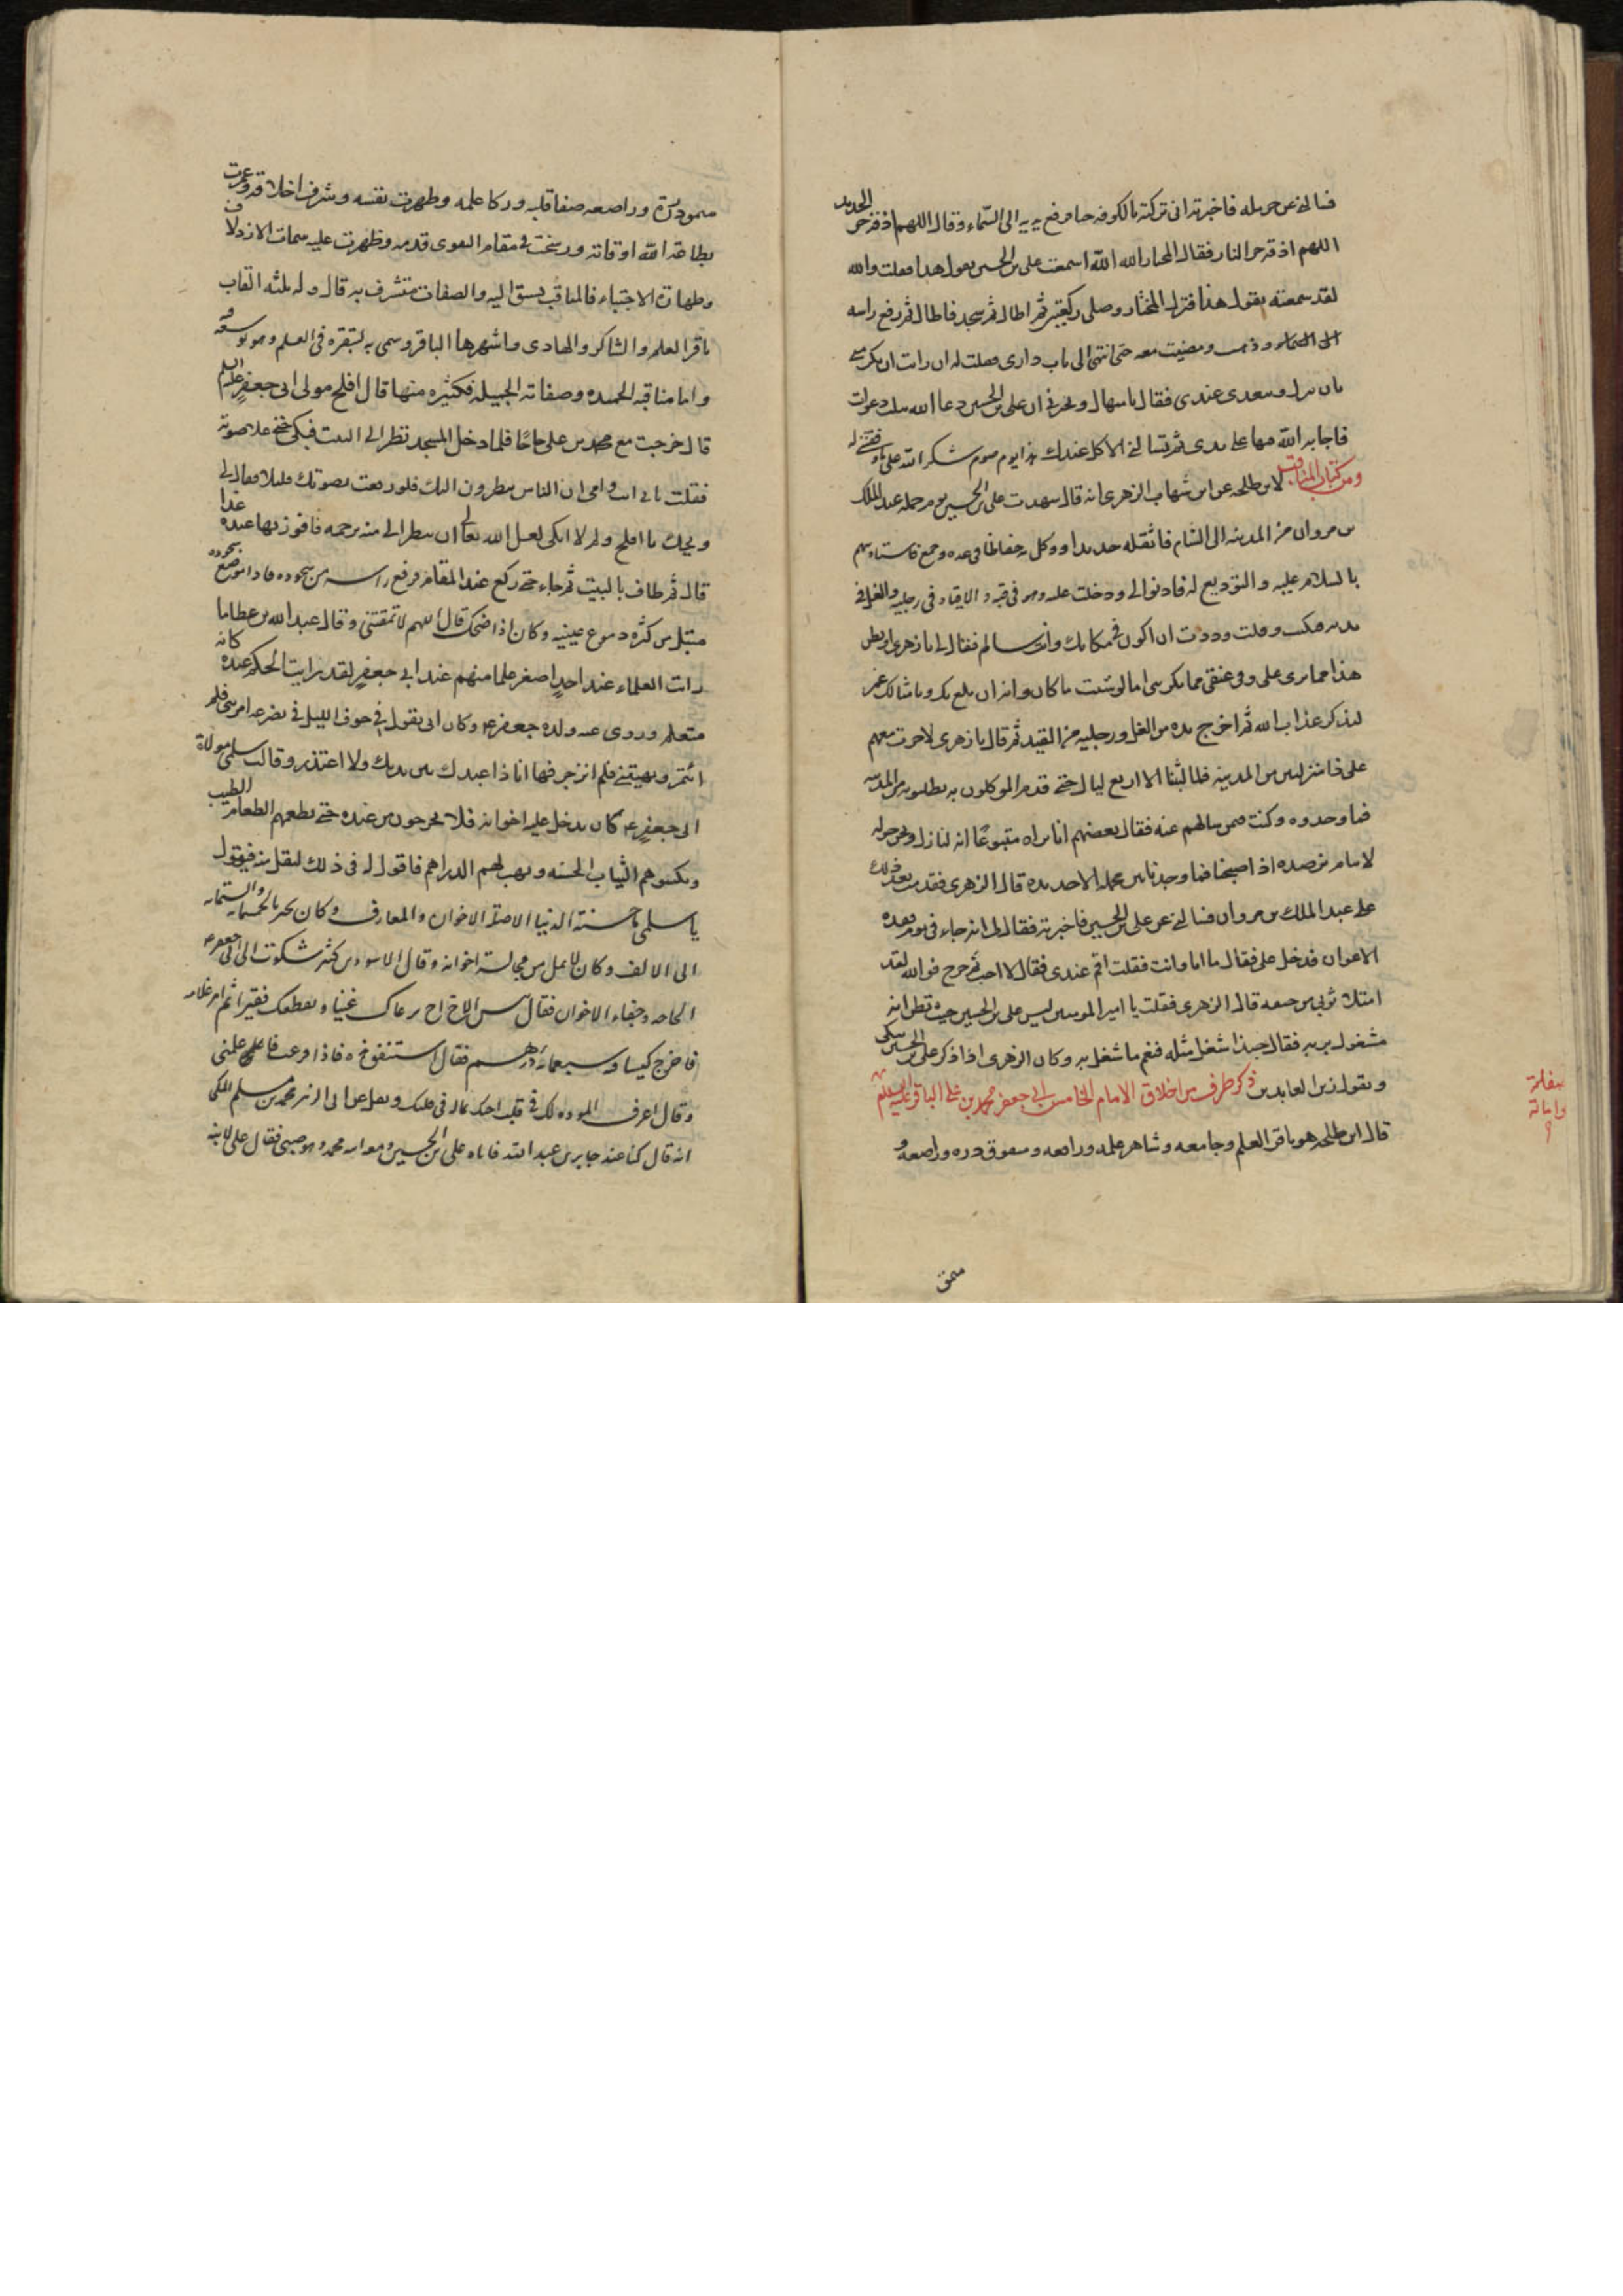 فسالنى عن حرمله فاخبرته انى تركته بالكوفه حيا فرفع يديه الى السماء وقال اللهم اذقه حر الحديد
اللهم اذقه حر النار فقال المختار الله الله اسمعت على بن الحسين يقول هذا فقلت والله
لقد سمعته يقول هذا فنزل المختار وصلى ركعتين ثم اطال ثم سجد فاطال ثم رفع راسه
وذهب ومضيت معه حتى انتهى الى باب دارى فقلت له ان رايت ان تكرمنى
بان تنزل وتتغدى عندى فقال يا منهال تخبرنى ان على بن الحسين دعا الله بثلث دعوات
فاجابه الله فيها على يدى ثم تسالنى الاكل عندك هذا يوم صوم شكرا لله على ما وفقنى له
ومن كتاب المناقب لابن طلحه عن ابن شهاب الزهرى انه قال شهدت على بن الحسين يوم حمله عبد الملك
بن مروان من المدينه الى الشام فاثقله حديدا ووكل به حفاظا فى عده وجمع فاستاذنتهم
بالسلام عليه والتوديع له فاذنوا لى ودخلت عليه وهو فى قبه والاقياد فى رجليه والغل فى
يديه فبكيت وقلت وددت ان اكون فى مكانك وانت سالم فقال لى يا زهرى اوتظن
هذا مما ترى على وفى عنقى مما يكربنى اما لو شئت ما كان وانه ان بلغ بك وبامثالك غمر
لتذكر عذاب الله ثم اخرج يده من الغل ورجليه من القيد ثم قال يا زهرى لا جزت معهم
على ذا منزلتين من المدينه فما لبثنا الا اربع ليال حتى قدم الموكلون به يطلبونه من المدينه
فما وجدوه وكنت فيمن سالهم عنه فقال بعضهم انا نراه متبوعا انه لنازل ونحن حوله
لا ننام نرصده اذا اصبحنا فما وجدنا بين محمله الا حديده قال الزهرى فقدمت بعد ذلك
على عبد الملك بن مروان فسالنى عن على بن الحسين فاخبرته فقال لى انه جاء فى يوم فقده
الاعوان فدخل على فقال ما انا وانت فقلت اقم عندى فقال لا احب ثم خرج فوالله لقد
امتلا ثوبى من خيفه قال الزهرى فقلت يا امير المومنين ليس على بن الحسين حيث تظن انه
مشغول بربه فقال حبذا شغل مثله فنعم ما شغل به وكان الزهرى اذا ذكر على بن الحسين يبكى
ويقول زين العابدين ذكر طرف من اخلاق الامام الخامس ابى جعفر محمد بن على الباقر عليه السلم
قال ابن طلحه هو باقر العلم وجامعه وشاهر علمه ورافعه ومفوق دره وراضعه و
منمق
منمق دره وراضعه صفا قلبه وزكا علمه وطهرت نفسه وشرف اخلاقه وعمرت
بطاعة الله اوقاته ورسخت فى مقام التقوى قدمه وظهرت عليه سمات الازدلاف
وطهارة الاجتباء فالمناقب تسبق اليه والصفات تتشرف به قال وله ثلثه القاب
باقر العلم والشاكر والهادى واشهرها الباقر وسمى به لتبقره فى العلم وهو توسعه فيه
واما مناقبه الحميده وصفاته الجميله فكثيره منها قال افلح مولى ابى جعفر عليه السلم
قال خرجت مع محمد بن على حاجا فلما دخل المسجد نظر الى البيت فبكى حتى علا صوته
فقلت بابى انت وامى ان الناس ينظرون اليك فلو رفعت بصوتك قليلا فقال لى
ويحك يا افلح ولم لا ابكى لعل الله تعالى ان ينظر الى منه برحمه فافوز بها عنده غدا
قال ثم طاف بالبيت ثم جاء حتى ركع عند المقام فرفع راسه من سجوده فاذا موضع سجوده
مبتل من كثره دموع عينيه وكان اذا ضحك قال اللهم لا تمقتنى وقال عبد الله بن عطا ما
رايت العلماء عند احد اصغر علما منهم عند ابى جعفر لقد رايت الحكم عنده كانه
متعلم وروى عنه ولده جعفر ع وكان ابى يقول فى جوف الليل فى تضرعه امرتنى فلم
ائتمر ونهيتنى فلم انزجر فها انا ذا عبدك بين يديك ولا اعتذر وقالت سلمى مولاة
ابى جعفر ع كان يدخل عليه اخوانه فلا يخرجون من عنده حتى يطعمهم الطعام الطيب
ويكسوهم الثياب الحسنه ويهب لهم الدراهم فاقول له فى ذلك ليقل منه فيقول
يا سلمى ما حسنة الدنيا الا صلة الاخوان والمعارف وكان يجيز بالخمسمائه والستمائه
الى الالف وكان لا يمل من مجالسة اخوانه وقال الاسود بن كثير شكوت الى ابى جعفر ع
الحاجه وجفاء الاخوان فقال بئس الاخ اخ يرعاك غنيا ويقطعك فقيرا ثم امر غلامه
فاخرج كيسا فيه سبعمائة درهم فقال استنفق هذه فاذا فرغت فاعلمنى
وقال اعرف الموده لك فى قلب اخيك بما له فى قلبك ونقل عن ابى الزبير محمد بن مسلم المكى
انه قال كنا عند جابر بن عبد الله فاتاه على بن الحسين ومعه ابنه محمد وهو صبى فقال على لابنه